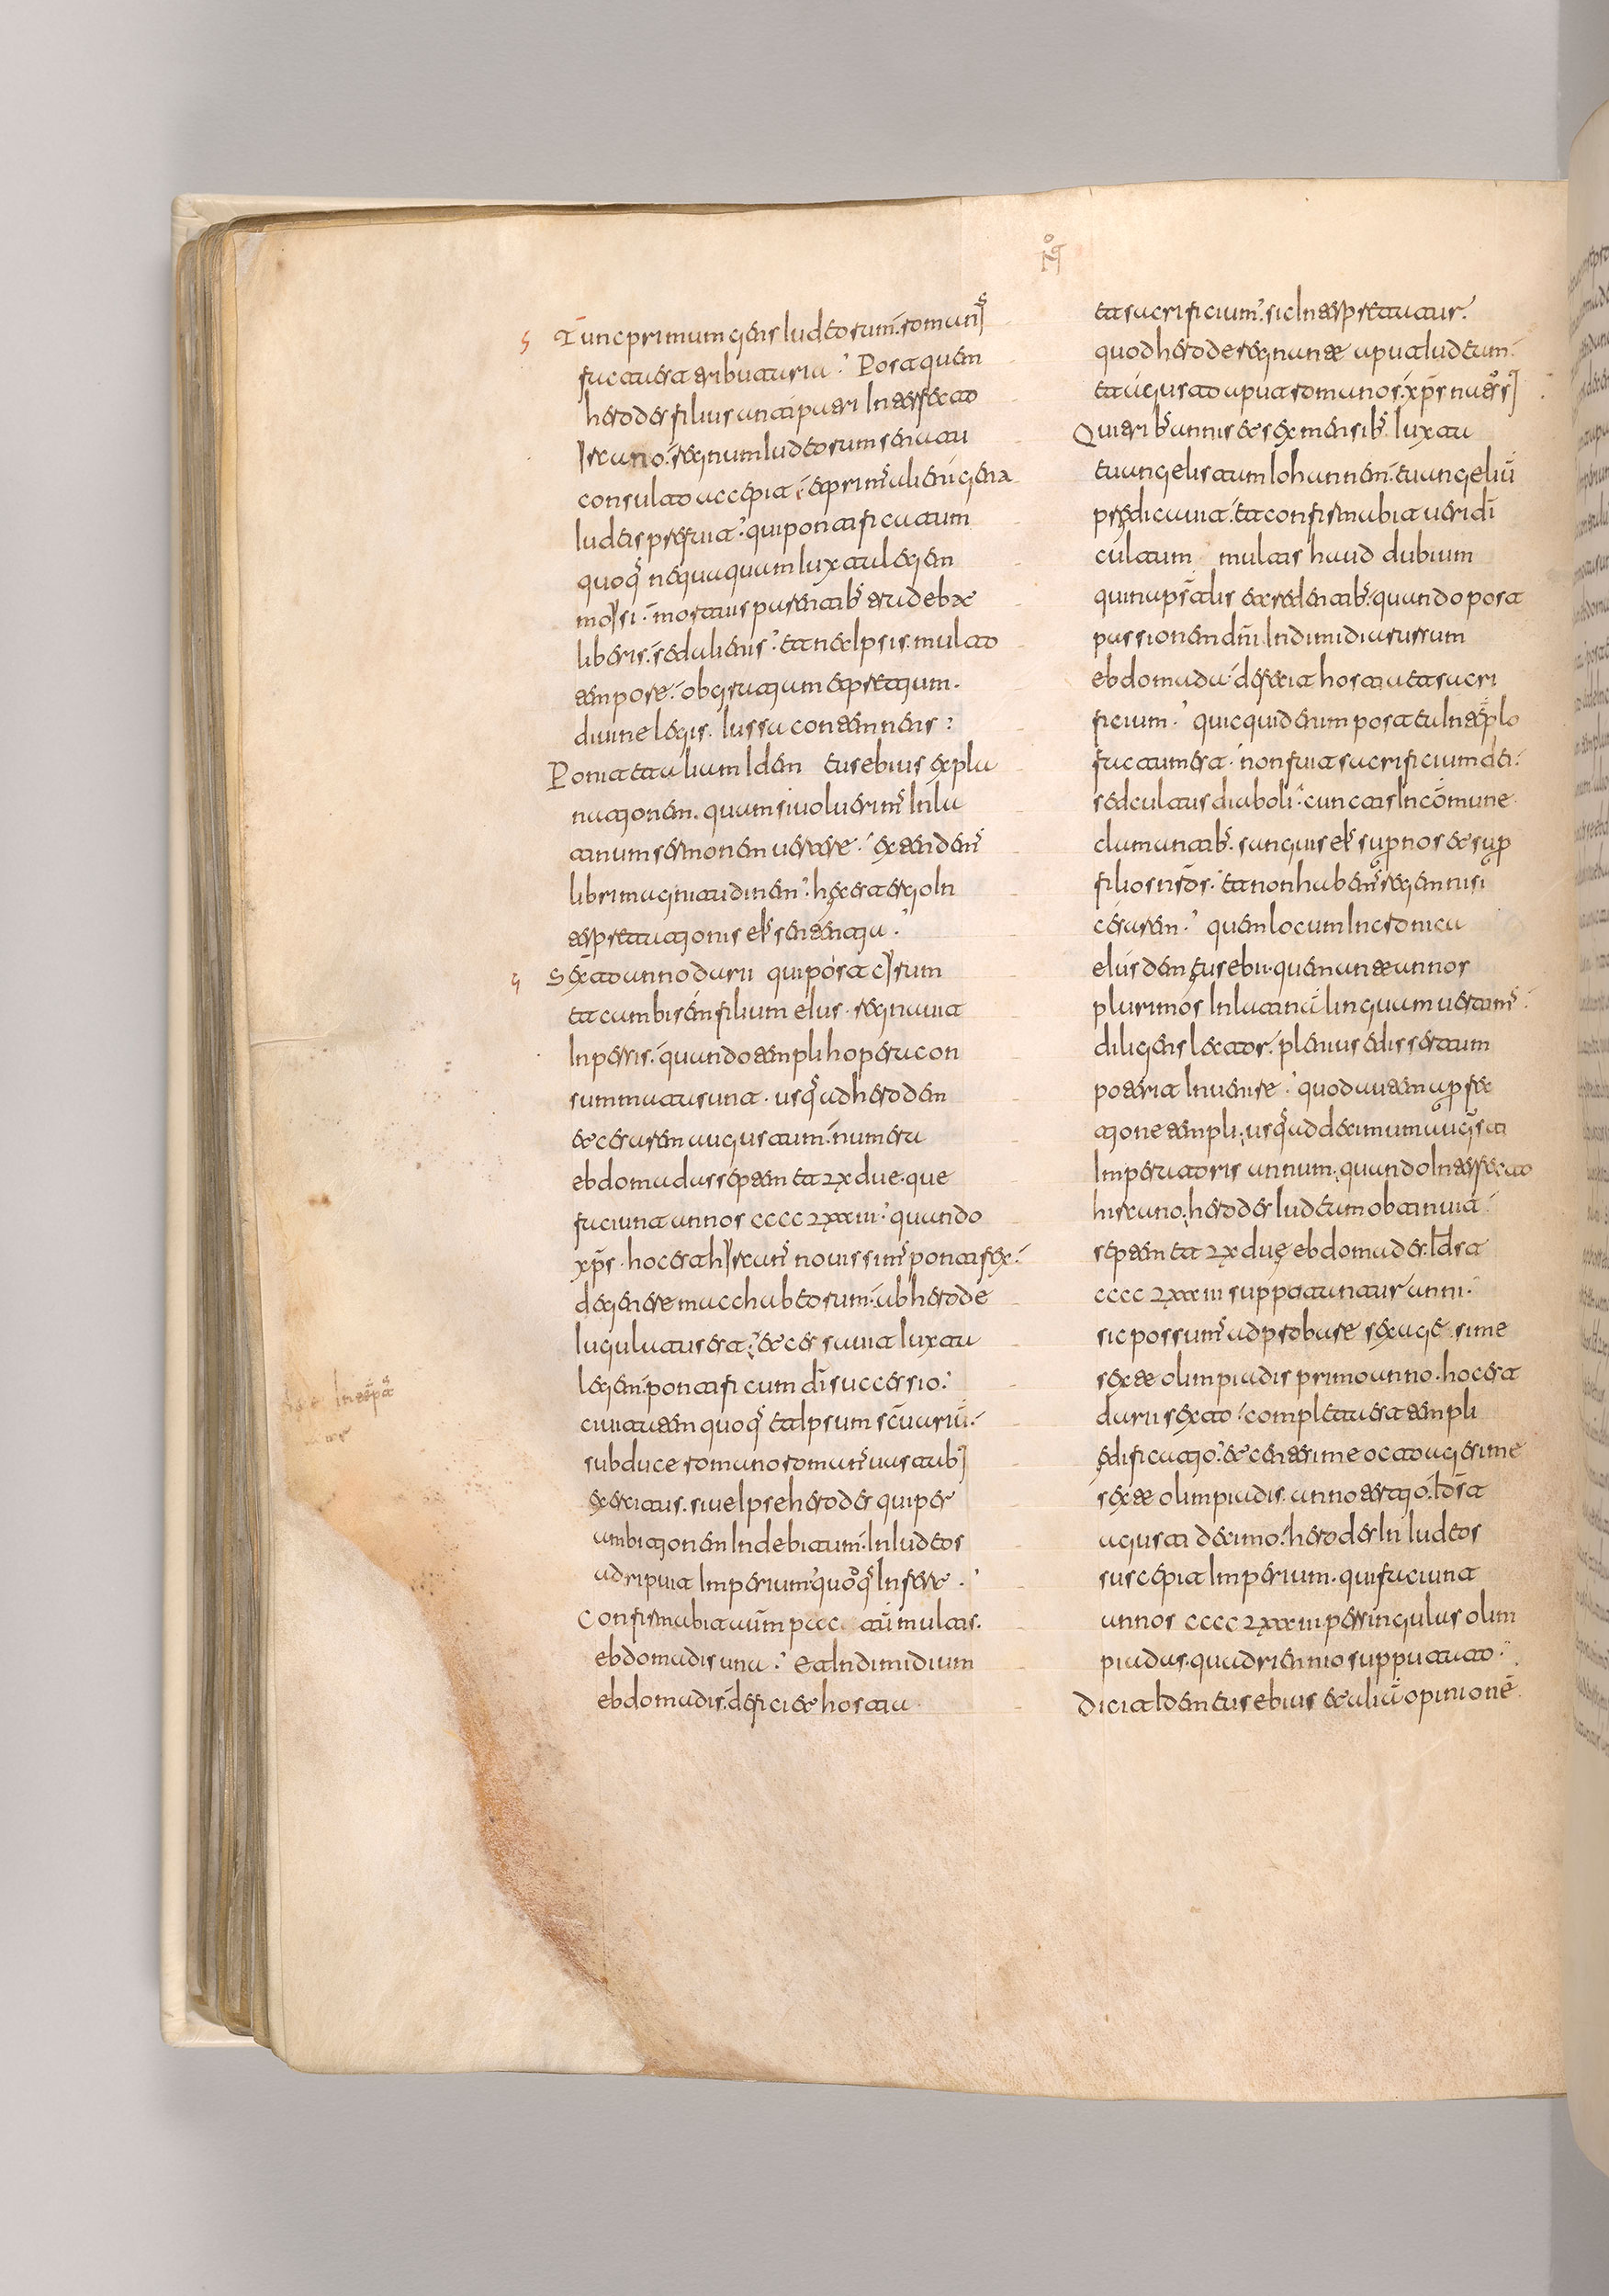 Tunc primum gens Iudeorum. romanꝰ
facta est tributaria. Post quem
herodes filius antipatri Interfecto
yrcano. regnum Iudeorum senatu
consulto accepit. et primꝰ alienigena
Iudeis prefuit. qui pontificatum
quoqꝫ nequaquam Iuxta legem
moysi. mortuis parentibꝫ tradebat
liberis. sed alienis. et nec Ipsis multo
tempore. ob gratiam et pretium.
divine legis Iussa contemnens.
Ponit et aliam Idem eusebius expla
nationem. quam si voluerimꝰ In la
tinum sermonem vertere. extendemꝰ
libri magnitudinem. hec est ergo In
terpretationis eiꝰ sententia.
Sexto anno darii qui post cyrum
et cambisen filium eius. regnavit
In persis. quando templi hopera con
summata sunt. usqꝫ ad herodem
et cesarem augustum. numera
ebdomadas septem et lx due. que
faciunt annos cccc lxxxiii. quando
xp̅s. hoc est hyrcanꝰ novissimꝰ pontifex.
de genere macchabeorum. ab herode
Iugulatus est. et cessavit Iuxta
legem. pontificum di̅ successio.
civitatem quoqꝫ et Ipsum sc̅uariu̅.
sub duce romano romanꝰ vastabit
exercitus. sive Ipse herodes qui per
ambitionem Indebitum. In Iudeos
adripuit Imperium. quoqꝫ Infert.
Confirmabit autem pac tu̅ multis.
ebdomadis una. et In dimidium
ebdomadis. deficiet hostia
et sacrificium. sic Interpretatur.
quod herode regnante apud Iudeam.
et agusto aput romanos. xp̅s natꝰ sit
Quattuor annis et sex mensibꝫ Iuxta
evangelistam Iohannem. evangeliu̅
predicavit. et confirmabit veri di
cultum multis haud dubium
quin apostolis et credentibꝫ. quando post
passionem dn̅i. In dimidia rursum
ebdomada. deficit hostia et sacri
ficium. quicquid enim postea In templo
factum est. non fuit sacrificium dei.
sed cultus diaboli. cunctis In co̅mune
clamantibꝫ. sanguis eiꝰ supꝑ nos et supꝑ
filios nostros. et non habemꝰ regem nisi
cesarem. quem locum In cronica
eiusdem eusebii. quem ante annos
plurimos In latina̅ linguam vertimꝰ.
diligens lector. plenius edissertum
poterit Invenire. quod autem a perfec
tione templi. usqꝫ ad decimum augusti
Imperatoris annum. quando Interfecto
hircano. herodes Iudeam obtinuit.
septem et lx due ebdomades. Id est
cccc lxxxiii supputantur anni.
sic possumꝰ adprobare sexagesime
sexte olimpiadis primo anno. hoc est
darii sexto. completa est templi
edificatio. et centesime octuagesime
sexte olimpiadis. anno tertio. Id est
agusti decimo. herodes In Iudeos
suscepit Imperium. qui faciunt
annos cccc lxxxiii per singulas olim
piadas. quadriennio supputato.
Dicit Idem eusebius et alia̅ opinione̅